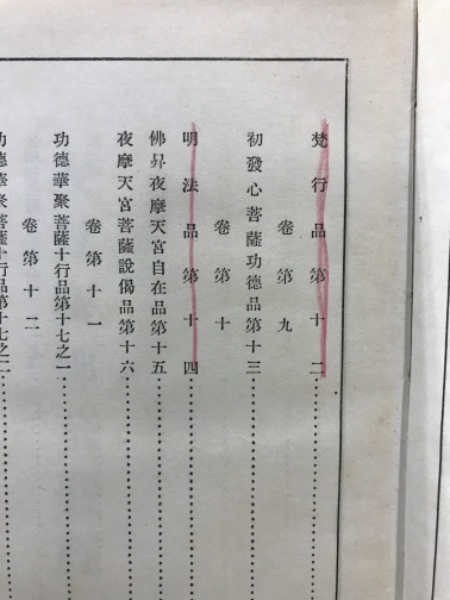 梵行品第十二
卷第九
初發心菩薩功德品第十三
卷第十
明法品第十四
佛昇夜摩天宮自在品第十五
夜摩天宮菩薩說偈品第十六
卷第十一
功德華聚菩薩十行品第十七之一
卷第十二
功德華聚菩薩十行品第十七之二